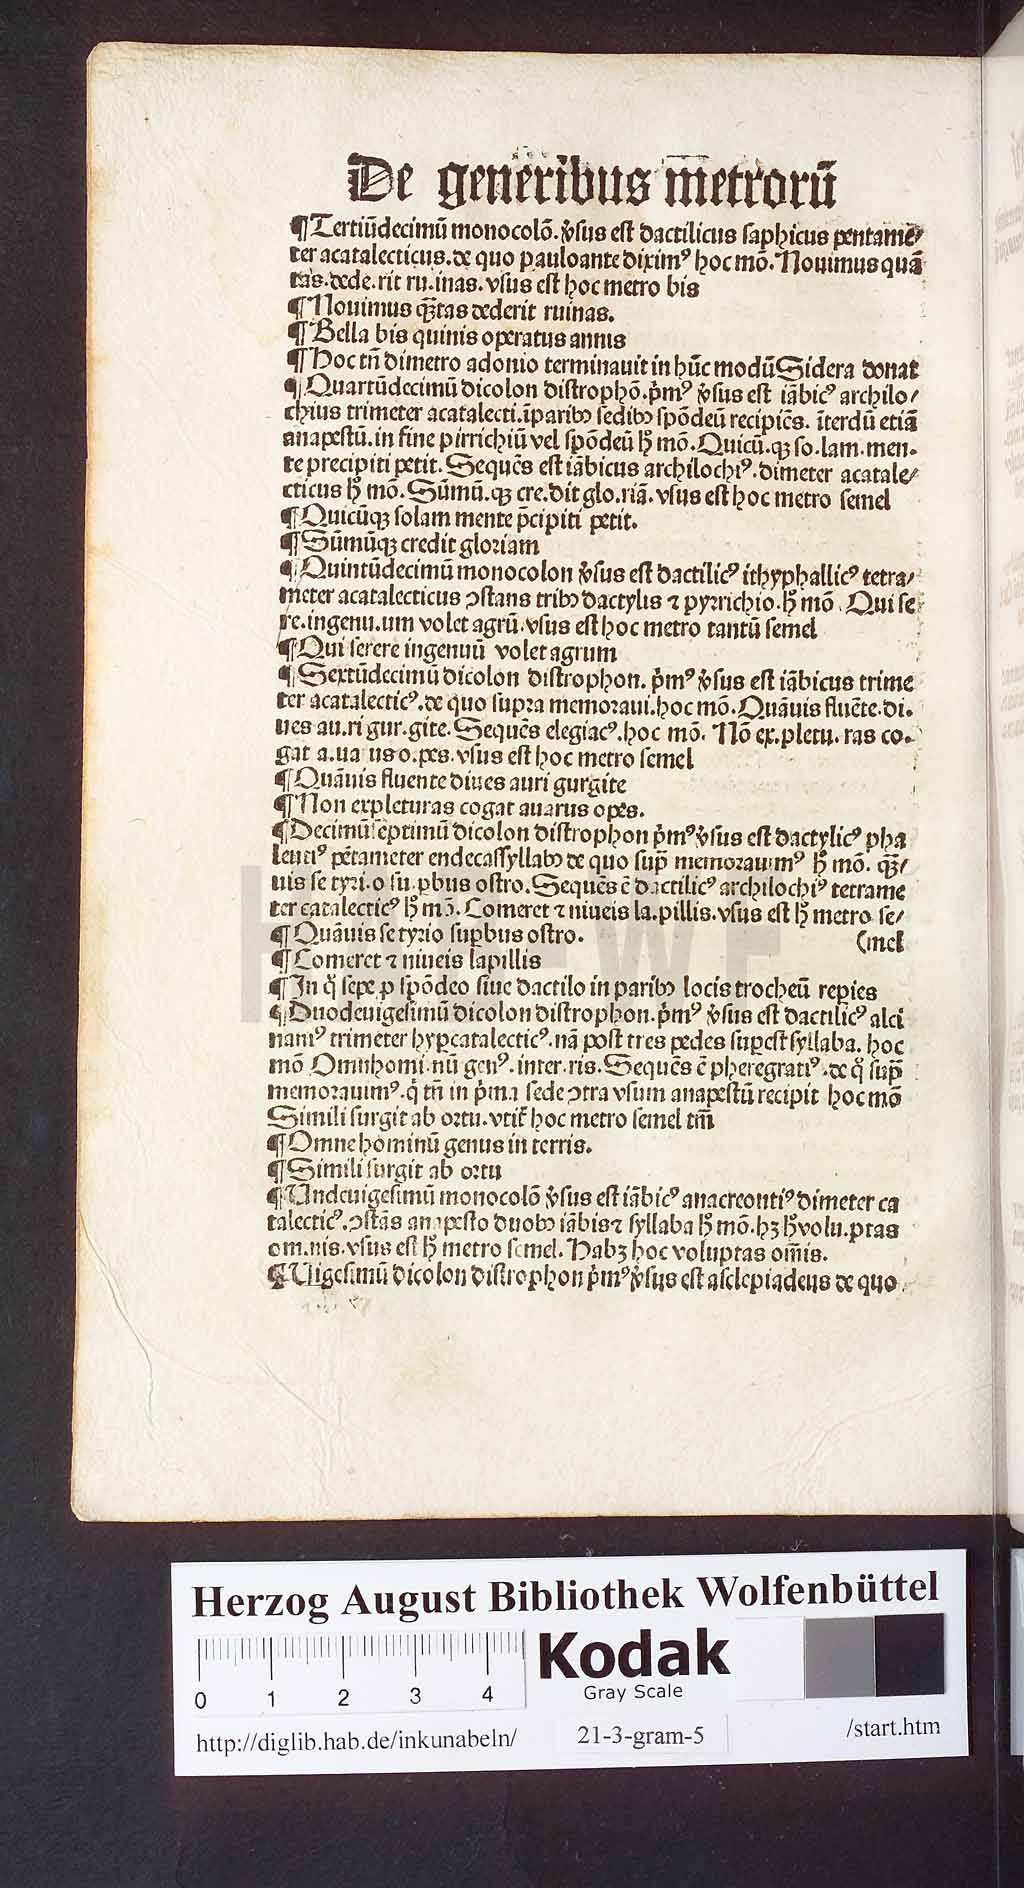 De generibus metrorū
¶Tertiūdecimū monocolō. v̓sus est dactilicus saphicus pentame⸗
ter acatalecticus. de quo pauloante diximꝰ hoc mō. Nouimus quā
tas. dede. rit ru. inas. vsus est hoc metro bis
¶Nouimus qȝ̄tas dederit ruinas.
¶Bella bis quinis operatus annis
¶Hoc tn̄ dimetro adonio terminauit in hūc modū Sidera donat
¶Quartūdecimū dicolon distrophō. p̓mꝰ v̓sus est iābicꝰ archilo⸗
chius trimeter acatalecti. īparibꝰ sedibꝰ spōdeū recipiēs. īterdū etiā
anapestū. in fine pirrichiū vel spōdeū hͦ mō. Quicū. qȝ so. lam. men.
te precipiti petit. Sequēs est iābicus archilochiꝰ. dimeter acatale⸗
cticus hͦ mō. Sūmū. qȝ cre. dit glo. riā. vsus est hoc metro semel
¶Quicūqȝ solam mente p̄cipiti petit.
¶Sūmūqȝ credit gloriam
¶Quintūdecimū monocolon v̓sus est dactilicꝰ ithyphallicꝰ tetra⸗
meter acatalecticus ↄstans tribꝰ dactylis ⁊ pyrrichio. hͦ mō. Qui se
re. ingenu. um volet agrū. vsus est hoc metro tantū semel
¶Qui serere ingenuū volet agrum
¶Sextūdecimū dicolon distrophon. p̓mꝰ v̓sus est iābicus trime
ter acatalecticꝰ. de quo supra memoraui. hoc mō. Quāuis fluēte. di.
ues au. ri gur. gite. Sequēs elegiacꝰ. hoc mō. Nō ex. pletu. ras co.
gat a. ua us o. pes. vsus est hoc metro semel
¶Quāuis fluente diues auri gurgite
¶Non expleturas cogat auarus opes.
¶Decimūseptimū dicolon distrophon p̓mꝰ v̓sus est dactylicꝰ pha
leuciꝰ pētameter endecassyllabꝰ de quo supͣ memorauimꝰ hͦ mō. qȝ̄⸗
uis se tyri. o su. ꝑbus ostro. Sequēs ē dactilicꝰ archilochiꝰ tetrame
ter catalecticꝰ hͦ mō. Comeret ⁊ niueis la. pillis. vsus est hͦ metro se⸗
¶Quāuis se tyrio suꝑbus ostro. (mel
¶Comeret ⁊ niueis lapillis
¶In qͦ sepe ꝓ spōdeo siue dactilo in paribꝰ locis trocheū repies
¶Duodeuigesimū dicolon distrophon. p̓mꝰ v̓sus est dactilicꝰ alci
namꝰ trimeter hyꝑcatalecticꝰ. nā post tres pedes suꝑest syllaba. hoc
mō Omnhomi. nū genꝰ. inter. ris. Sequēs ē pheregratiꝰ. de qͦ supͣ
memorauimꝰ. q̓ tn̄ in p̓ma sede ↄtra vsum anapestū recipit hoc mō
Simili surgit ab ortu. vtit̃ hoc metro semel tm̄
¶Omne hominū genus in terris.
¶Simili surgit ab ortu
¶Undeuigesimū monocolō v̓sus est iābicꝰ anacreontiꝰ dimeter ca
talecticꝰ. ↄstās anapesto duobꝰ iābis ⁊ syllaba hͦ mō. hȝ hͦ volu. ptas
om. nis. vsus est hͦ metro semel. Habȝ hoc voluptas om̄is.
¶Uigesimū dicolon distrophon p̓mꝰ v̓sus est asclepiadeus de quo
Herzog August Bibliothek Wolfenbüttel
0 1 2 3 4
Kodak
Gray Scale
http://diglib.hab.de/inkunabeln/ 21-3-gram-5 /start.htm